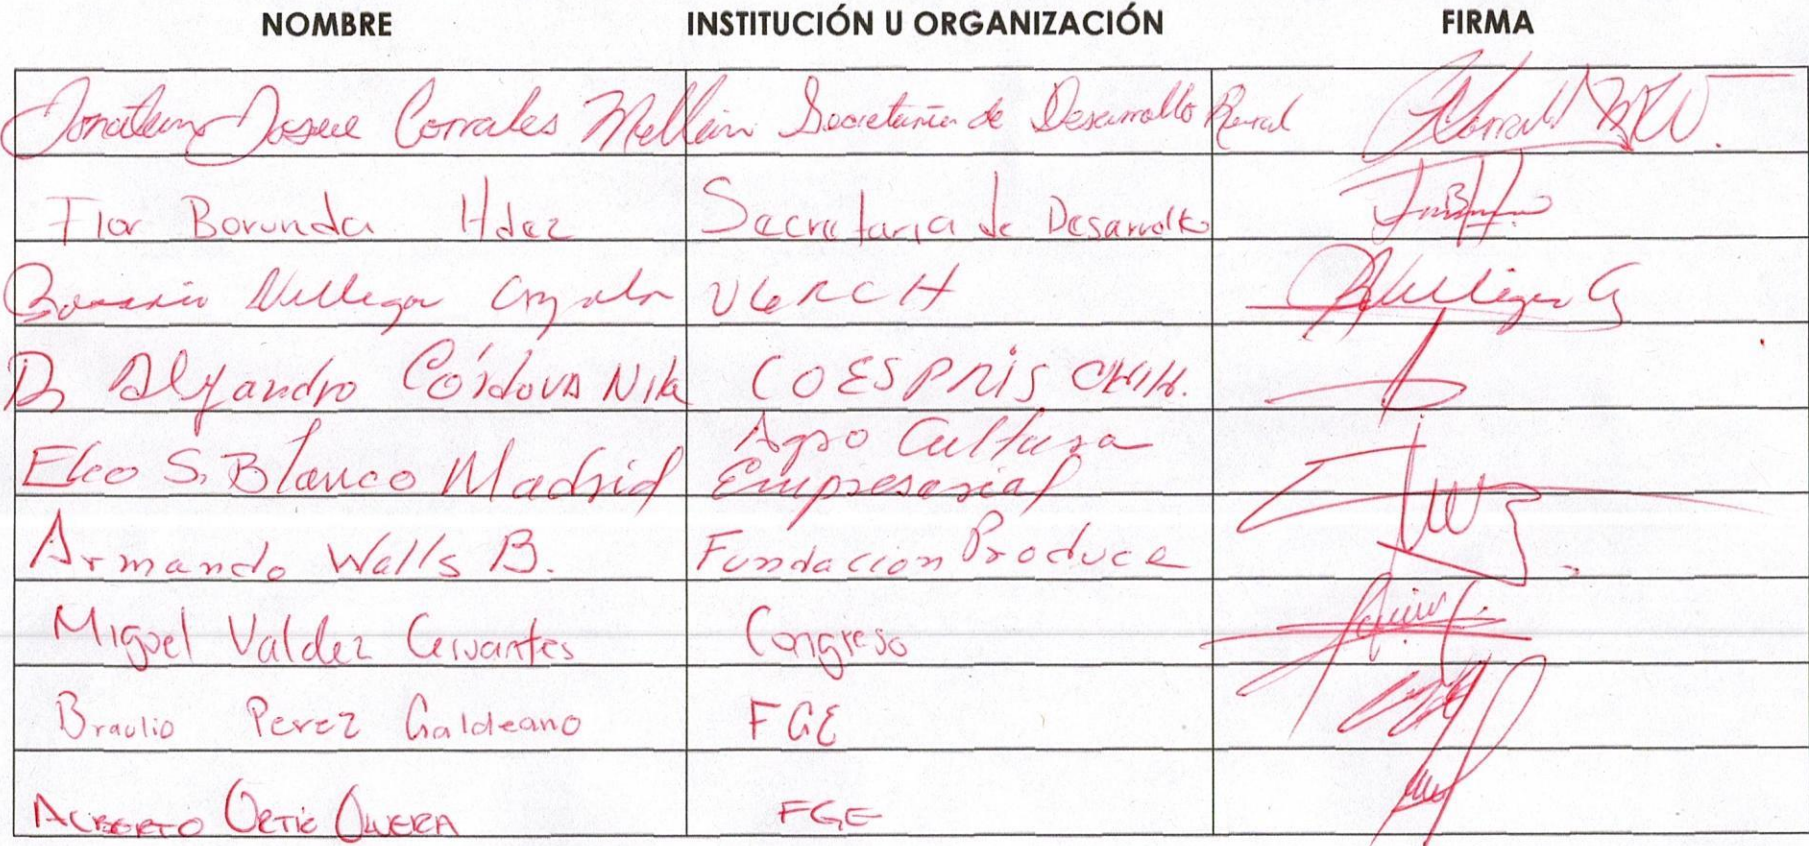 NOMBRE INSTITUCIÓN U ORGANIZACIÓN FIRMA
Jonatan Josue Corrales Mellan Secretaria de Desarrollo Rural
Flor Borunda Hdez Secretaria de Desarrollo
Villegas UGRCH
Alejandro Córdova COESPRIS CHIH.
Agro Cultura
S. Blanco Madrid Empresarial
Armando Walls B. Fundacion Produce
Miguel Valdez Cervantes Congreso
Braulio Perez Galdeano FGE
ALBERTO ORTIZ OLVERA FGE